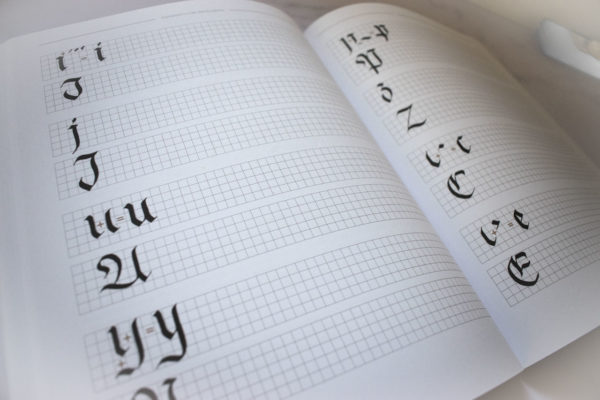 i = i
I
j
J
u + = u
U
y + = y
P
z
Z
c + c
C
e + = e
E